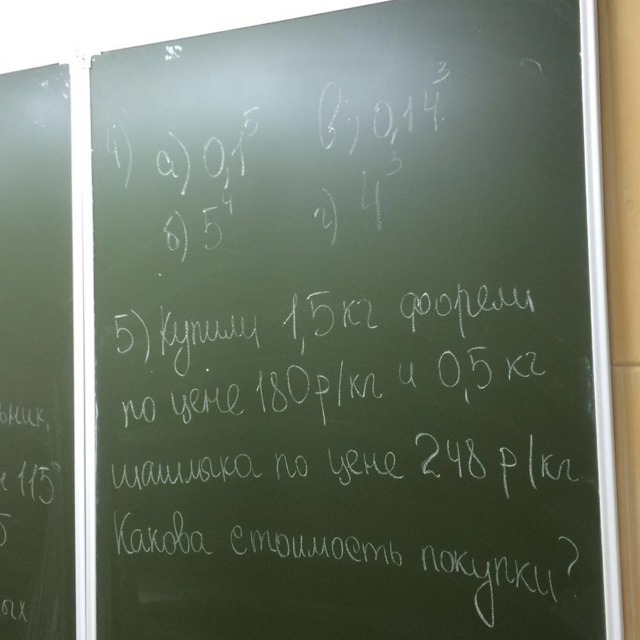 4) а) 0,1⁵ в) 0,14³
б) 5⁴ г) 4³
5) Купили 1,5 кг форели
по цене 180 р/кг и 0,5 кг
шашлыка по цене 248 р/кг
Какова стоимость покупки?
115°